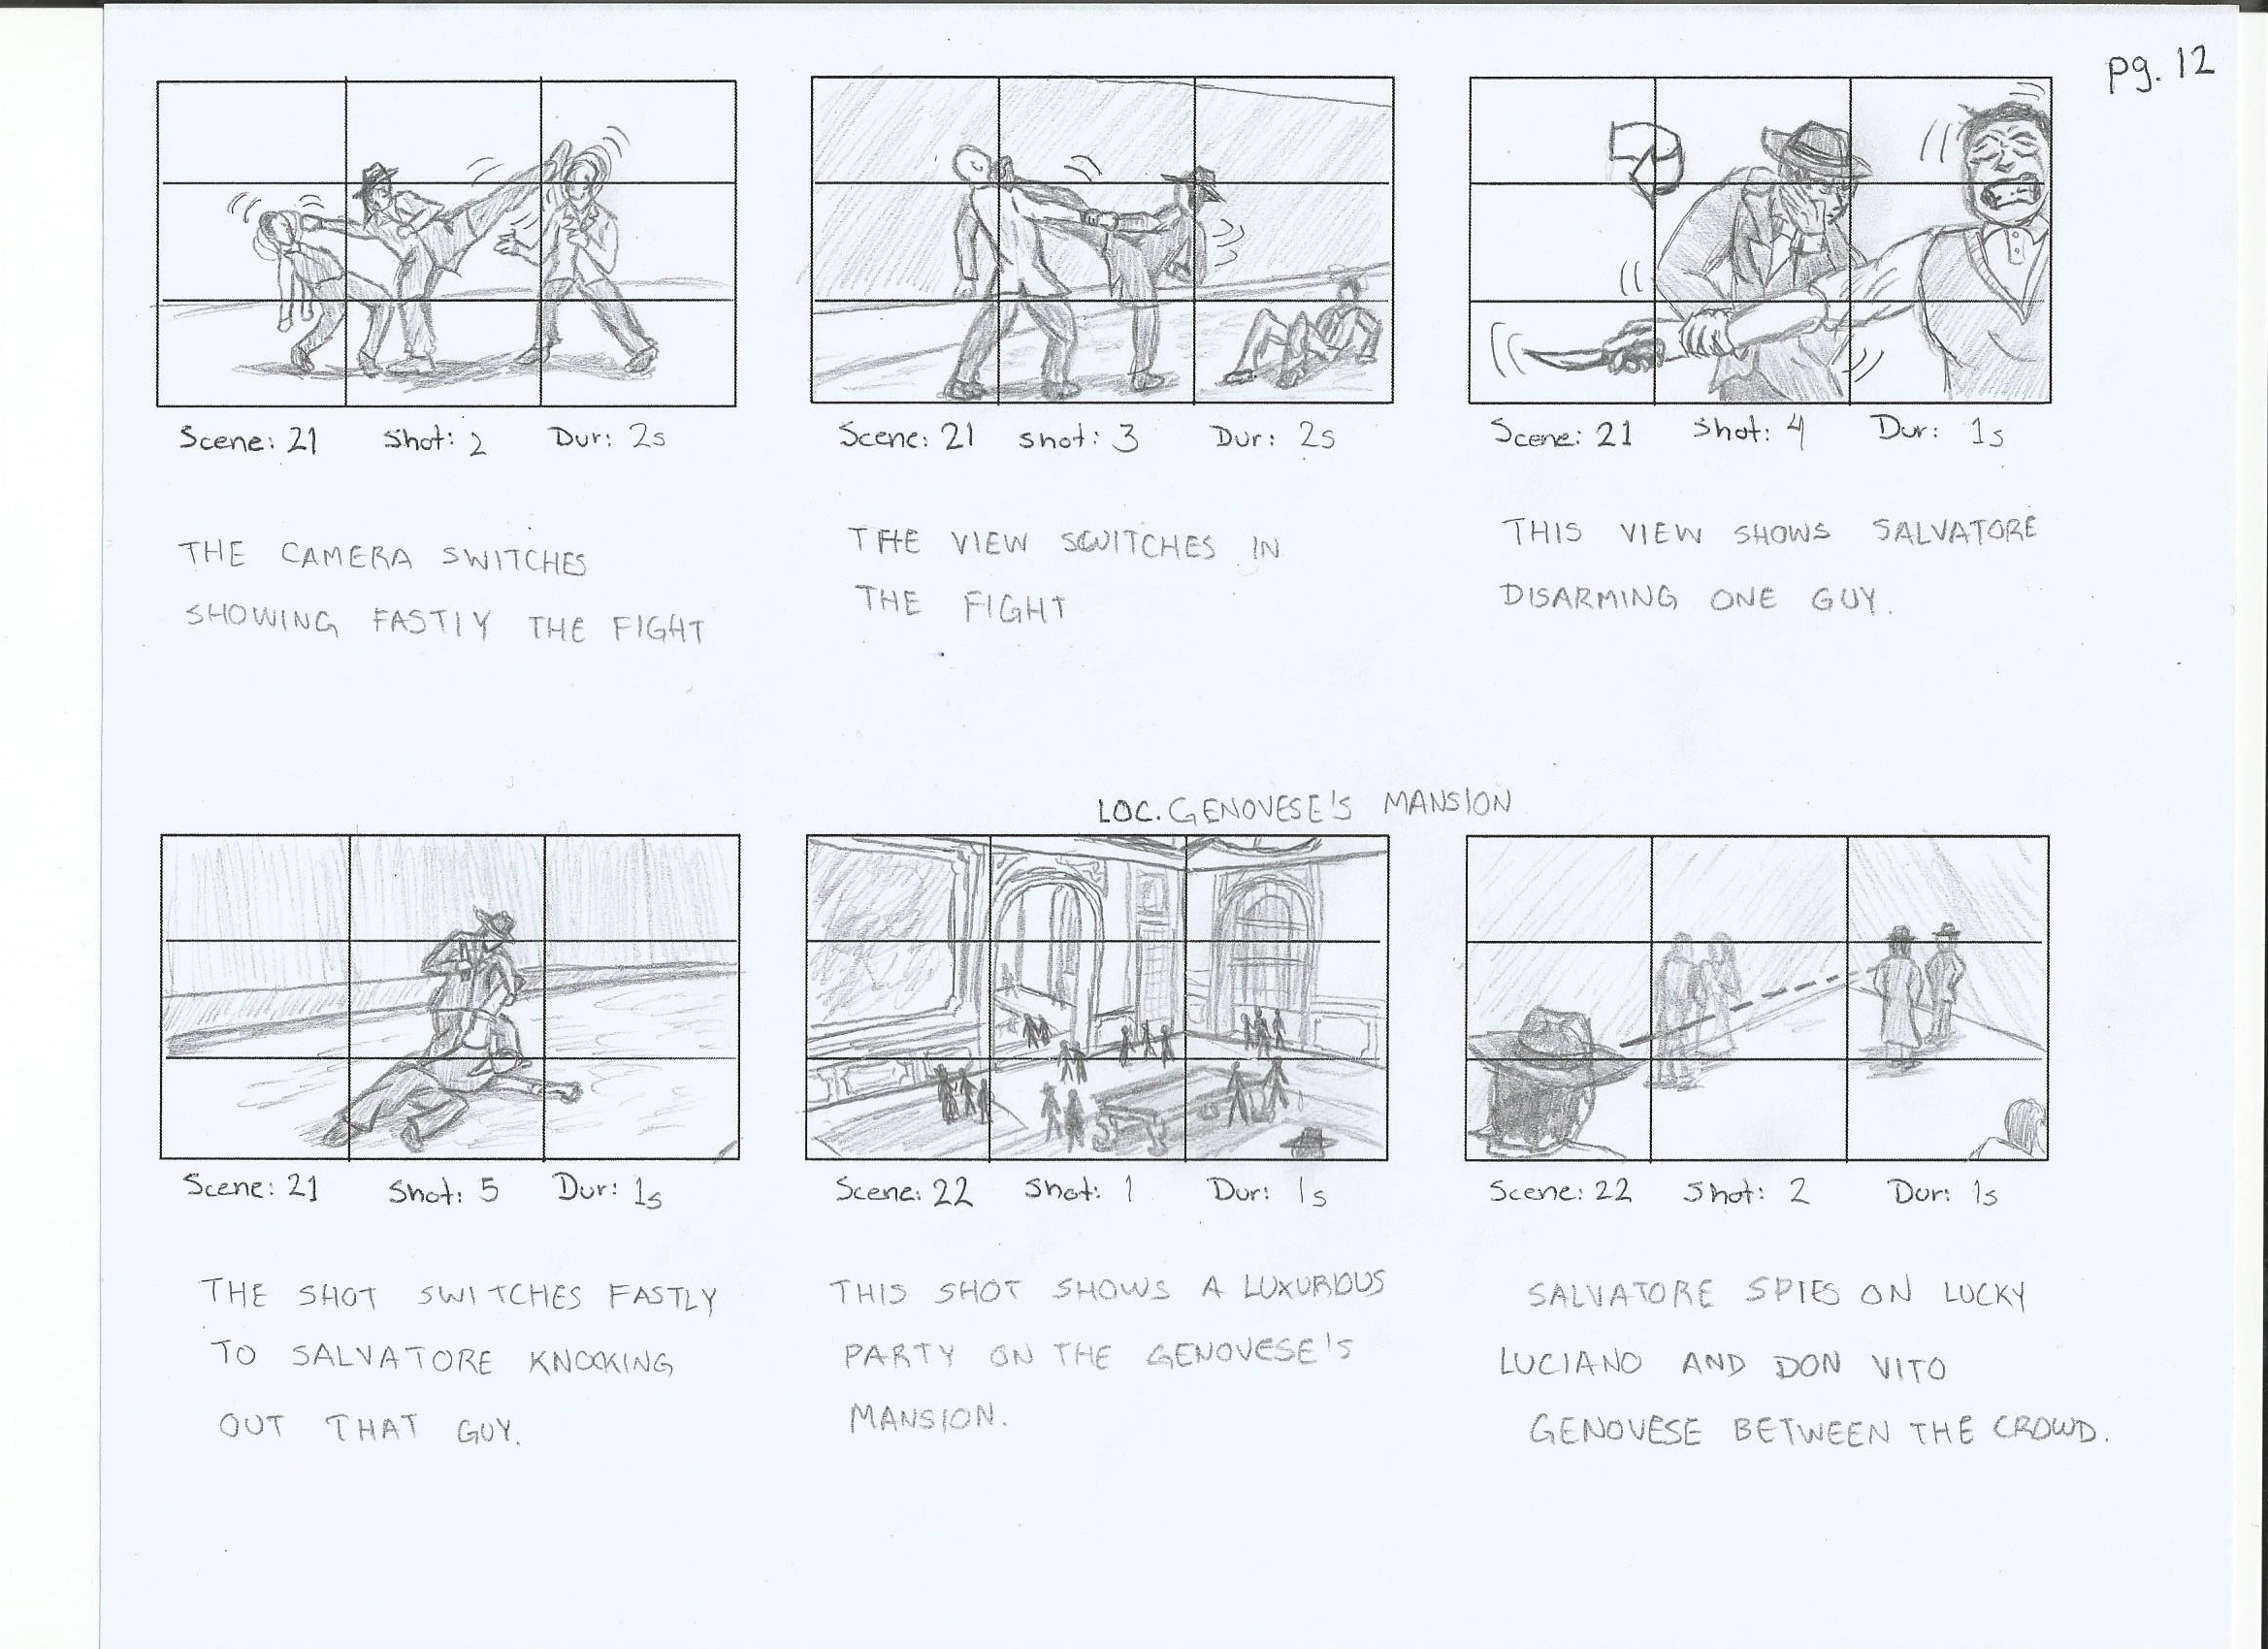 pg. 12
Scene: 21 Shot: 2 Dur: 2s
THE CAMERA SWITCHES
SHOWING FASTLY THE FIGHT
Scene: 21 Shot: 3 Dur: 2s
THE VIEW SWITCHES IN
THE FIGHT
Scene: 21 Shot: 4 Dur: 1s
THIS VIEW SHOWS SALVATORE
DISARMING ONE GUY.
LOC. GENOVESE'S MANSION
Scene: 21 Shot: 5 Dur: 1s
THE SHOT SWITCHES FASTLY
TO SALVATORE KNOCKING
OUT THAT GUY.
Scene: 22 Shot: 1 Dur: 1s
THIS SHOT SHOWS A LUXURIOUS
PARTY ON THE GENOVESE'S
MANSION.
Scene: 22 Shot: 2 Dur: 1s
SALVATORE SPIES ON LUCKY
LUCIANO AND DON VITO
GENOVESE BETWEEN THE CROWD.